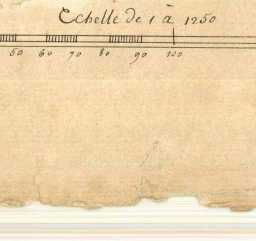 Echelle de 1 à 1250
50 60 70 80 90 100